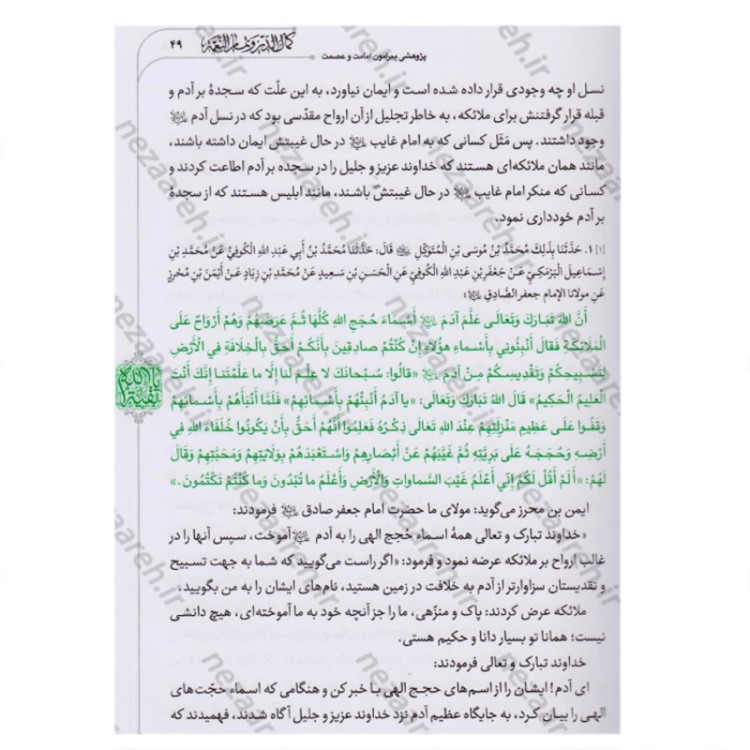 ۴۹
کمال الدین و تمام النعمة
پژوهشی پیرامون امامت و عصمت
نسل او چه وجودی قرار داده شده است و ایمان نیاورد، به این علّت که سجدهٔ بر آدم و
قبله قرار گرفتنش برای ملائکه، به خاطر تجلیل از آن ارواح مقدّسی بود که در نسل آدم علیه السلام
وجود داشتند. پس مَثَل کسانی که به امام غایب علیه السلام در حال غیبتش ایمان داشته باشند،
مانند همان ملائکه‌ای هستند که خداوند عزیز و جلیل را در سجده بر آدم اطاعت کردند و
کسانی که منکر امام غایب علیه السلام در حال غیبتش باشند، مانند ابلیس هستند که از سجدهٔ
بر آدم خودداری نمود.
[۱] ۱. حَدَّثَنَا بِذَلِکَ مُحَمَّدُ بْنُ مُوسَی بْنِ الْمُتَوَکِّلِ قَالَ: حَدَّثَنَا مُحَمَّدُ بْنُ أَبِي عَبْدِ اللهِ الْکُوفِيُّ عَنْ مُحَمَّدِ بْنِ
إِسْمَاعِيلَ الْبَرْمَکِيِّ عَنْ جَعْفَرِ بْنِ عَبْدِ اللهِ الْکُوفِيِّ عَنِ الْحَسَنِ بْنِ سَعِيدٍ عَنْ مُحَمَّدِ بْنِ زِيَادٍ عَنْ أَيْمَنَ بْنِ مُحْرِزٍ
عَنِ مولانا الإمام جعفر الصَّادِقِ علیه السلام:
أَنَّ اللهَ تَبَارَكَ وَتَعَالَى عَلَّمَ آدَمَ علیه السلام أَسْمَاءَ حُجَجِ اللهِ كُلَّهَا ثُمَّ عَرَضَهُمْ وَهُمْ أَرْوَاحٌ عَلَى
الْمَلَائِكَةِ فَقَالَ أَنْبِئُونِي بِأَسْمَاءِ هؤُلَاءِ إِنْ كُنْتُمْ صَادِقِينَ بِأَنَّكُمْ أَحَقُّ بِالْخِلَافَةِ فِي الْأَرْضِ
لِتَسْبِيحِكُمْ وَتَقْدِيسِكُمْ مِنْ آدَمَ علیه السلام «قَالُوا: سُبْحَانَكَ لَا عِلْمَ لَنَا إِلَّا مَا عَلَّمْتَنَا إِنَّكَ أَنْتَ
الْعَلِيمُ الْحَكِيمُ» قَالَ اللهُ تَبَارَكَ وَتَعَالَى: «يَا آدَمُ أَنْبِئْهُمْ بِأَسْمَائِهِمْ» فَلَمَّا أَنْبَأَهُمْ بِأَسْمَائِهِمْ
وَقَفُوا عَلَى عَظِيمِ مَنْزِلَتِهِمْ عِنْدَ اللهِ تَعَالَى ذِكْرُهُ فَعَلِمُوا أَنَّهُمْ أَحَقُّ بِأَنْ يَكُونُوا خُلَفَاءَ اللهِ فِي
أَرْضِهِ وَحُجَجَهُ عَلَى بَرِيَّتِهِ ثُمَّ غَيَّبَهُمْ عَنْ أَبْصَارِهِمْ وَاسْتَعْبَدَهُمْ بِوَلَايَتِهِمْ وَمَحَبَّتِهِمْ وَقَالَ
لَهُمْ: «أَ لَمْ أَقُلْ لَكُمْ إِنِّي أَعْلَمُ غَيْبَ السَّمَاوَاتِ وَالْأَرْضِ وَأَعْلَمُ مَا تُبْدُونَ وَمَا كُنْتُمْ تَكْتُمُونَ.»
یا بقیة الله
ایمن بن محرز می‌گوید: مولای ما حضرت امام جعفر صادق علیه السلام فرمودند:
«خداوند تبارک و تعالی همهٔ اسماء حُجج الهی را به آدم علیه السلام آموخت، سپس آنها را در
غالب ارواح بر ملائکه عرضه نمود و فرمود: «اگر راست می‌گویید که شما به جهت تسبیح
و تقدیستان سزاوارتر از آدم به خلافت در زمین هستید، نام‌های ایشان را به من بگویید،
ملائکه عرض کردند: پاک و منزّهی، ما را جز آنچه خود به ما آموخته‌ای، هیچ دانشی
نیست؛ همانا تو بسیار دانا و حکیم هستی.
خداوند تبارک و تعالی فرمودند:
ای آدم! ایشان را از اسم‌های حجج الهی با خبر کن و هنگامی که اسماء حجّت‌های
الهی را بیان کرد، به جایگاه عظیم آدم نزد خداوند عزیز و جلیل آگاه شدند، فهمیدند که
nezaareh.ir